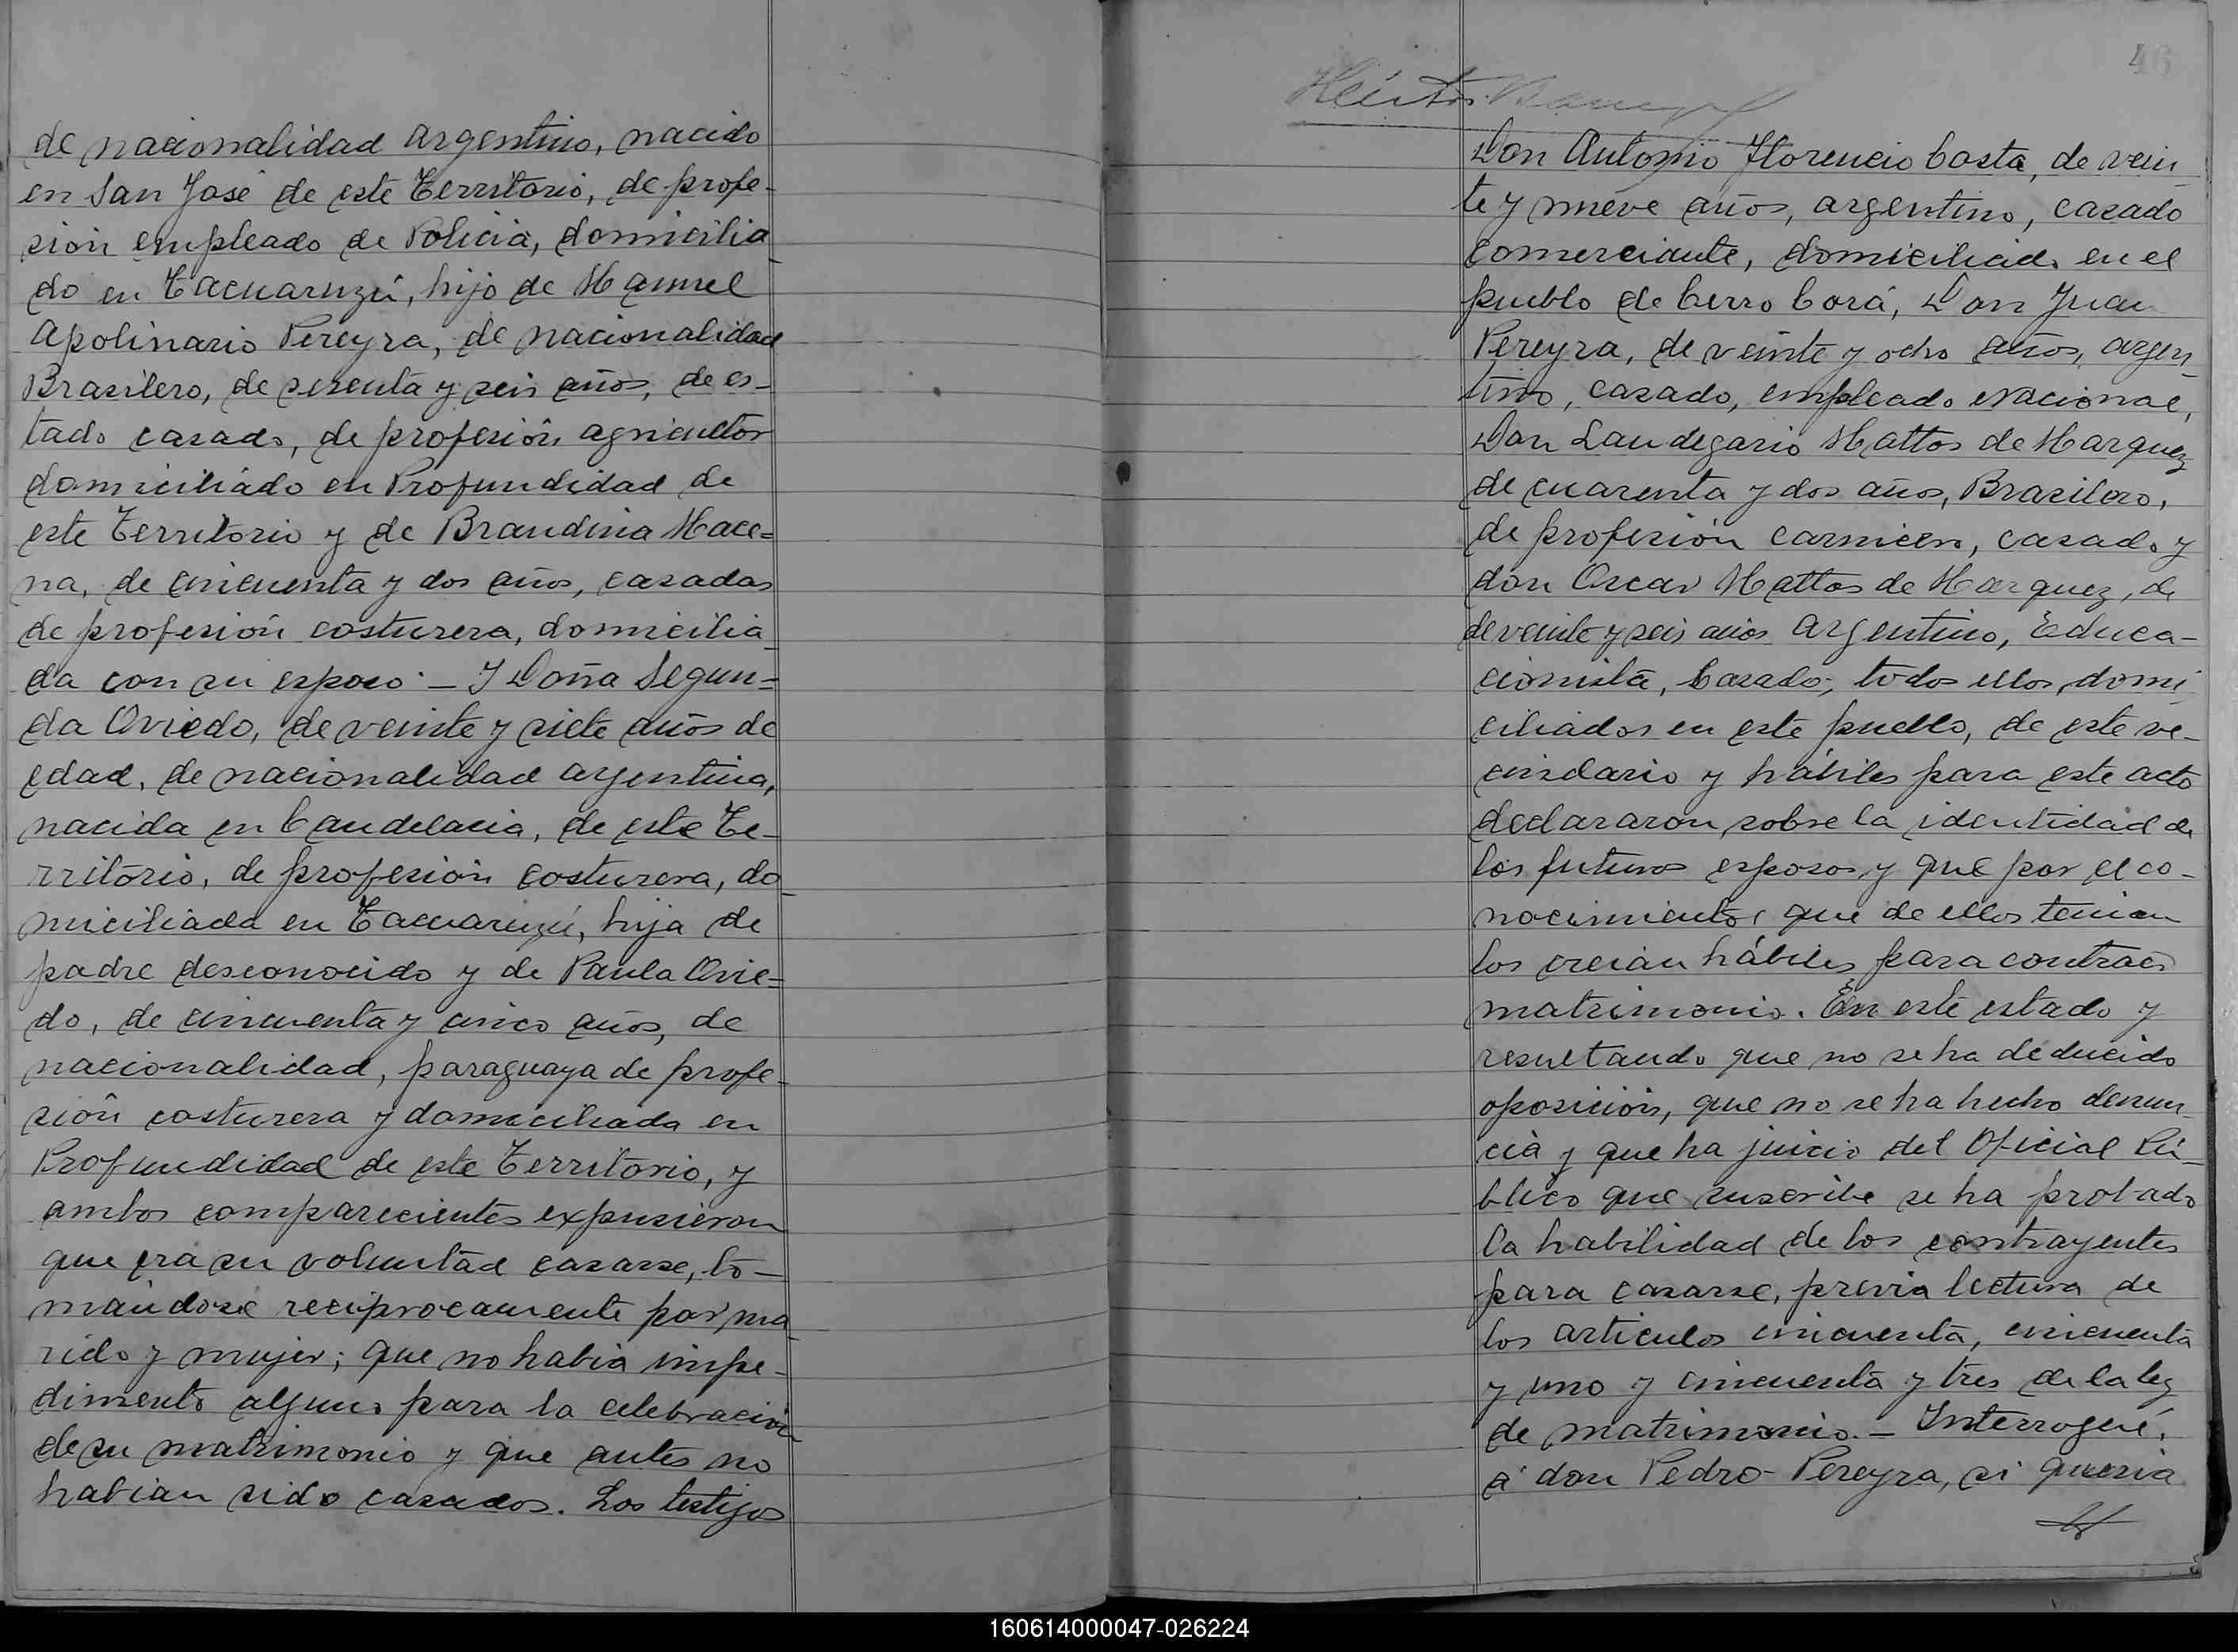 de nacionalidad argentino, nacido
en San José de este Territorio, de profe-
sion empleado de Policia, domicilia
do en Tacuaruzú, hijo de Manuel
Apolinario Pereyra, de nacionalidad
Brasilero, de sesenta y seis años, de es-
tado casado, de profesión agricultor
domiciliado en Profundidad de
este Territorio y de Brandina Mace=
na, de cincuenta y dos años, casadas
de profesión costurera, domicilia
da con su esposo. — Y Doña Segun=
da Oviedo, de veinte y siete años de
edad, de nacionalidad argentina,
nacida en Candelaria, de este Te-
rritório, de profesión costurera, do
miciliada en Tacuaruzú, hija de
padre desconocido y de Paula Ovie=
do, de cincuenta y cinco años, de
nacionalidad, paraguaya de profe-
sión costurera y domiciliada en
Profundidad de este Territorio, y
ambos comparecientes expusieron
que era su voluntad casarse, to—
mándose reciprocamente por ma
rido y mujer; que no habia impe-
dimento alguno para la celebración
de su matrimonio y que antes no
habian sido casados. Los testigos
46
Héctor
Don Antonio Florencio Costa, de vein
te y nueve años, argentino, casado
comerciante, domiciliado en el
pueblo de Cerro Corá, Don Juan
Pereyra, de veinte y ocho años, argen
tino, casado, empleado Nacional,
Don Laudegario Mattos de Marquez
de cuarenta y dos años, Brasilero,
de profesión carnicero, casado y
don Oscar Mattos de Marquez, de
de veinte y seis años Argentino, Educa-
cionista, Casado; todos ellos, domi
ciliados en este pueblo, de este ve-
cindario y hábiles para este acto
declararon sobre la identidad de
los futuros esposos y que por el co-
nocimiento, que de ellos tenian
los creian hábiles para contraer
matrimonio. En este estado y
resultando que no se ha deducido
oposición, que no se ha hecho denun
cia y que ha juicio del Oficial Pú-
blico que suscribe se ha probado
la habilidad de los contrayentes
para casarse, previa lectura de
los articulos cincuenta, cincuenta
y uno y cincuenta y tres de la ley
de matrimonio. — Interrogué,
á don Pedro Pereyra, si queria
160614000047-026224